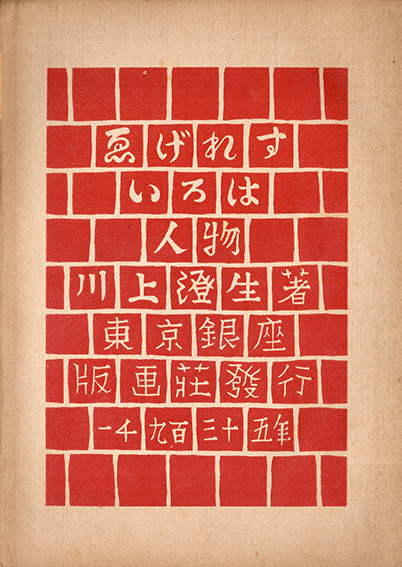 ゑげれす
いろは
人物
川上澄生著
東京銀座
版画荘發行
一千九百三十五年